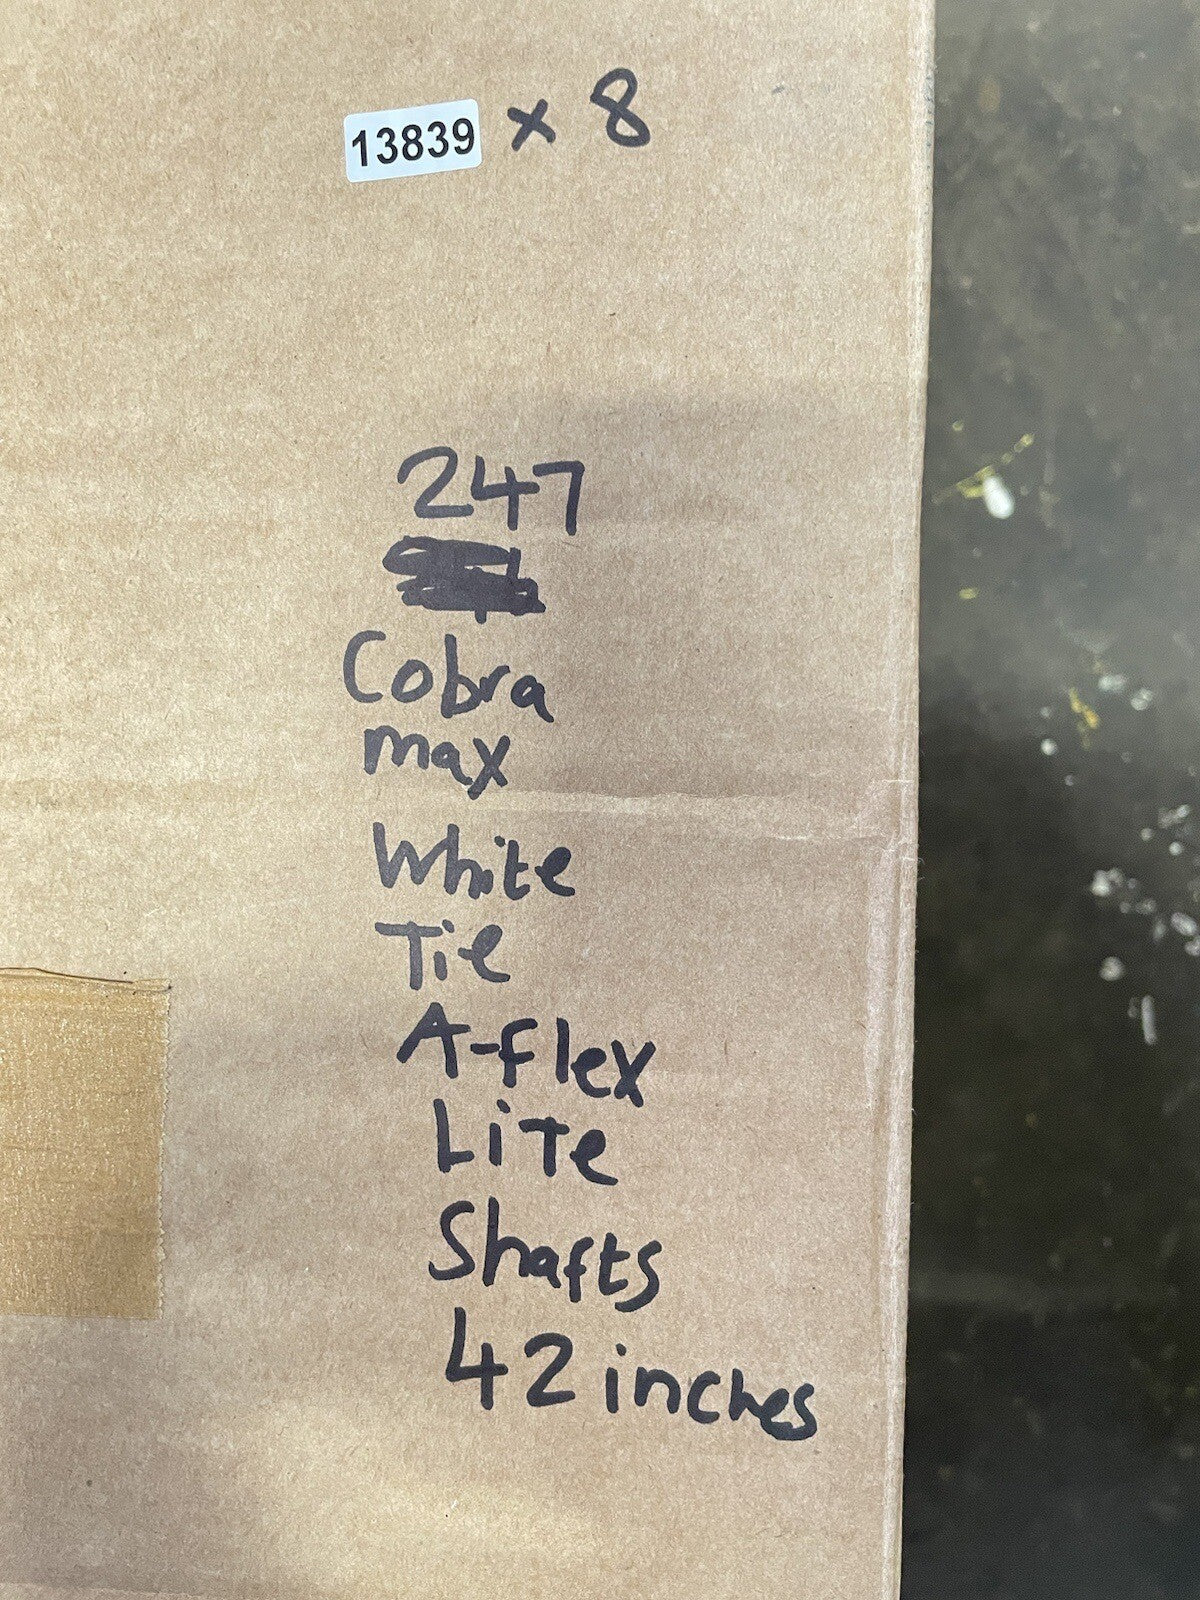 13839 x 8
247
Cobra
max
White
Tie
A-flex
Lite
Shafts
42 inches